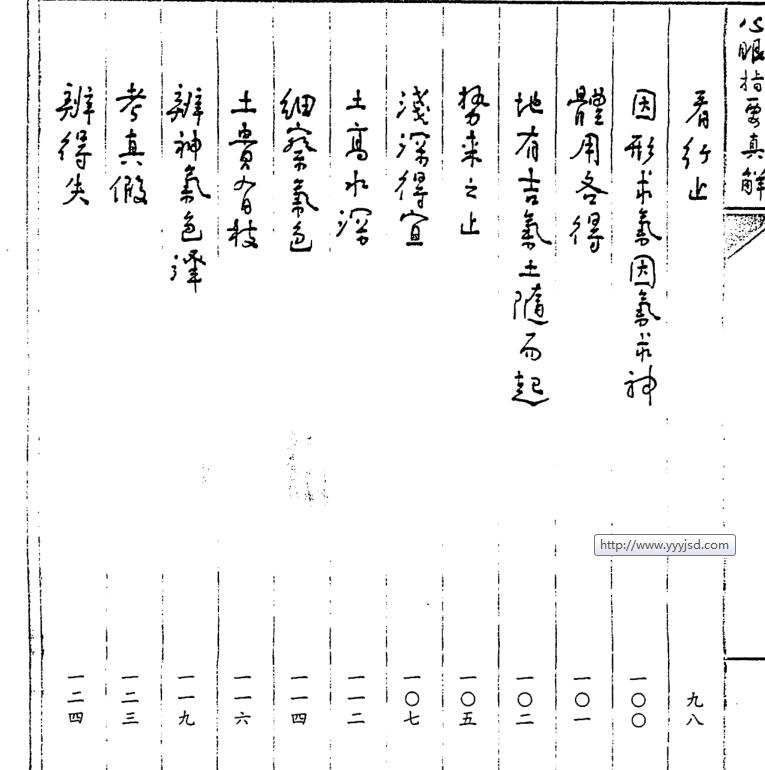 心眼指要真解
看行止 九八
因形求氣因氣求神 一〇〇
體用各得 一〇一
地有吉氣土隨而起 一〇二
勢來之止 一〇五
淺深得宜 一〇七
土高水深 一一二
細察氣色 一一四
土貴有枝 一一六
辨神氣色澤 一一九
考真假 一二三
辨得失 一二四
http://www.yyyjsd.com